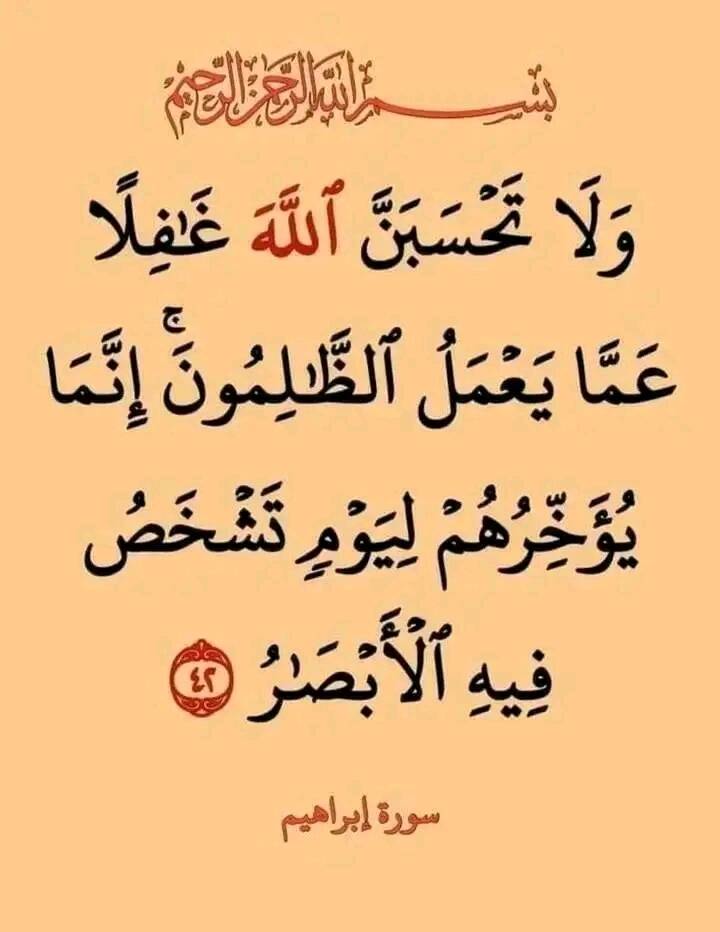 بسم الله الرحمن الرحيم
وَلَا تَحۡسَبَنَّ ٱللَّهَ غَٰفِلًا
عَمَّا يَعۡمَلُ ٱلظَّٰلِمُونَۚ إِنَّمَا
يُؤَخِّرُهُمۡ لِيَوۡمٖ تَشۡخَصُ
فِيهِ ٱلۡأَبۡصَٰرُ ٤٢
سورة إبراهيم